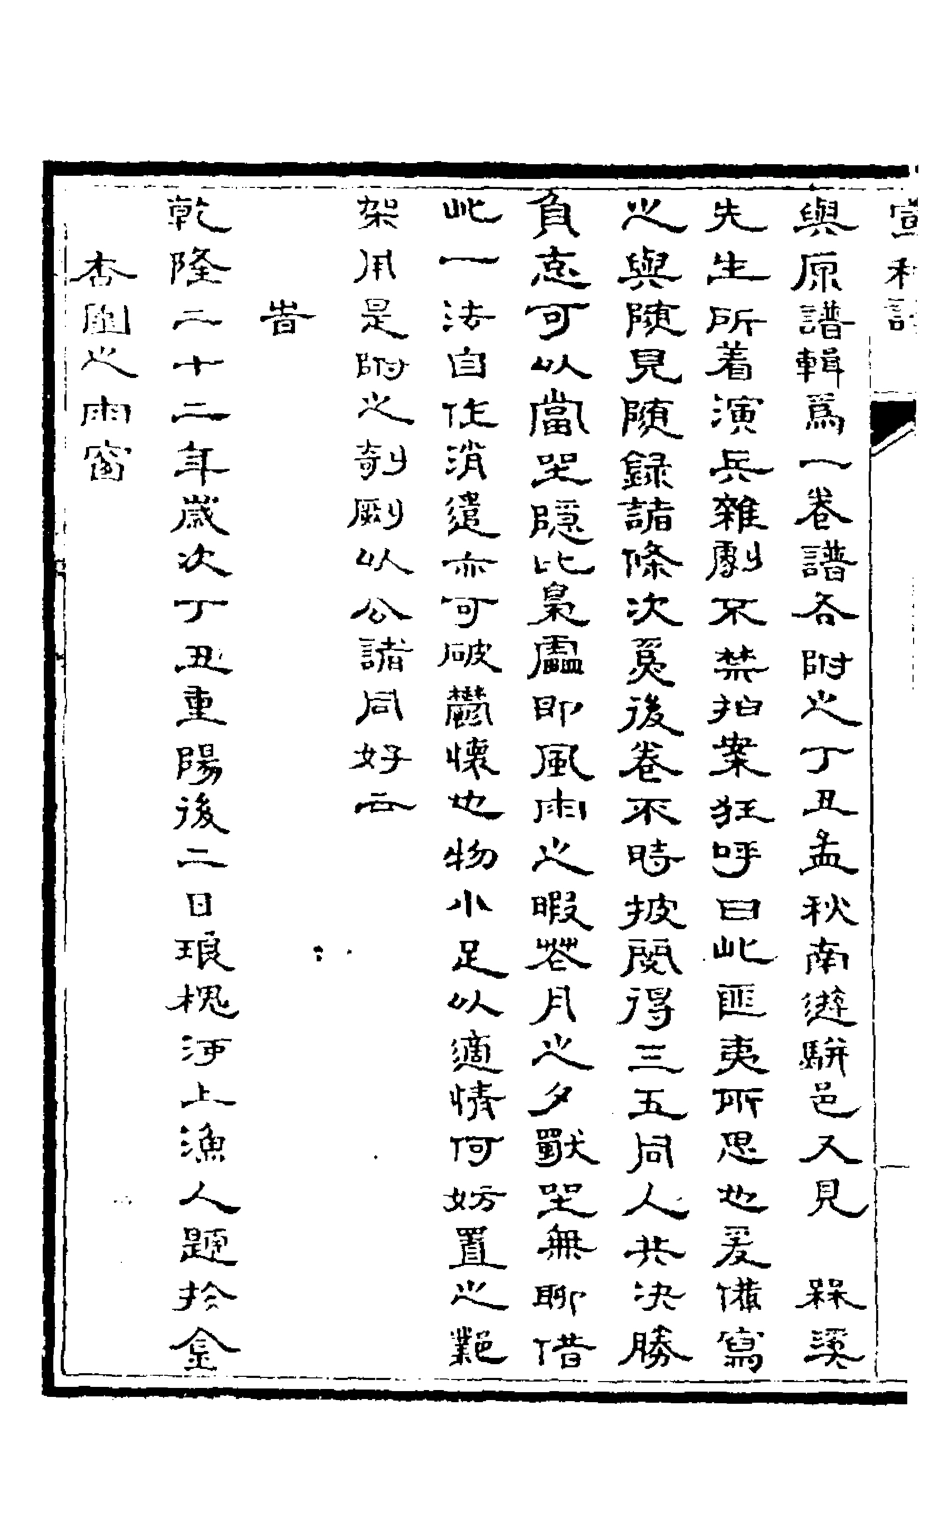 宣和譜
與原譜輯爲一卷譜各附之丁丑孟秋南遊駢邑又見 槑溪
先生所着演兵雜劇不禁拍案狂呼曰此匪夷所思也爰備寫
之與隨見隨録諸條次奚後卷不時披閱得三五同人共決勝
負志可以當坐隱比梟盧即風雨之暇花月之夕獸坐無聊借
此一法自作消遣亦可破鬱懷也物小足以適情何妨置之
架用是附之剞劂以公諸同好云
旹
乾隆二十二年歲次丁丑重陽後二日琅槐河上漁人題於金
杏園之雨窗